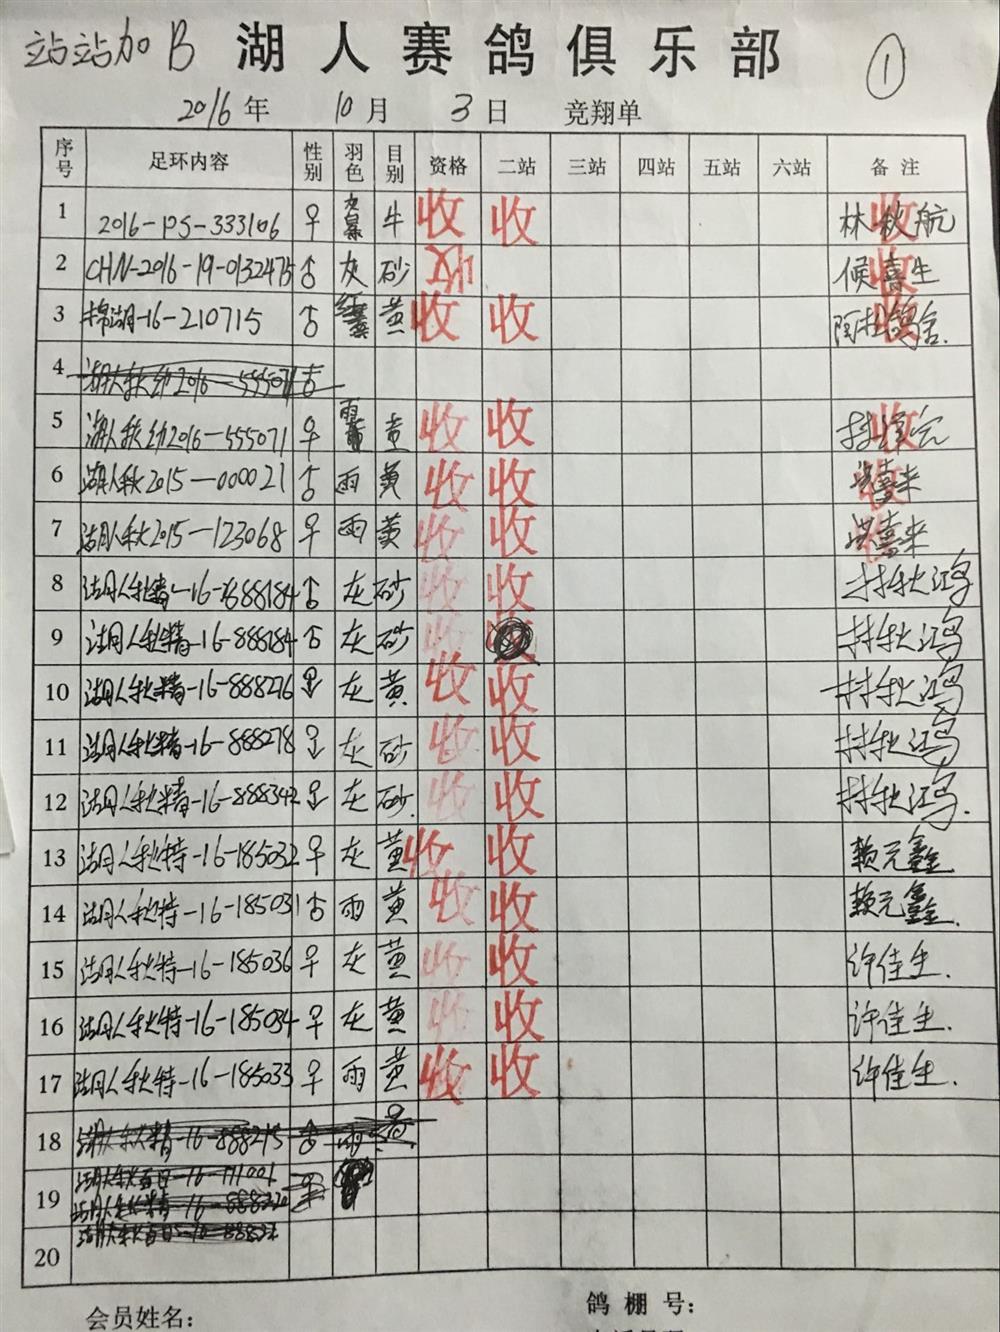 站站加B 湖人赛鸽俱乐部 ①
2016年 10月 3日 竞翔单
序号 足环内容 性别 羽色 目别 资格 二站 三站 四站 五站 六站 备注
1 2016-PS-333106 ♀ 牛 收 收 林秋航 收
2 CHN-2016-19-0132475 ♂ 灰 砂 候喜生 收
3 棉湖-16-210715 ♂ 黄 收 收 鸽舍. 收
4 湖人秋幼2016-555071 ♂
5 湖人秋幼2016-555071 ♀ 黄 收 收 收
6 湖人秋2015-000021 ♂ 雨 黄 收 收 洪喜来 收
7 湖人秋2015-123068 ♀ 雨 黄 收 收 洪喜来 收
8 湖人秋精-16-888184 ♂ 灰 砂 收 收 林秋鸿
9 湖人秋精-16-888184 ♂ 灰 砂 收 林秋鸿
10 湖人秋精-16-888276 灰 黄 收 收 林秋鸿
11 湖人秋精-16-888278 ♀ 灰 砂 收 收 林秋鸿
12 湖人秋精-16-888342 ♀ 灰 砂. 收 收 林秋鸿.
13 湖人秋特-16-185032 ♀ 灰 黄 收 收 赖元鑫
14 湖人秋特-16-185031 ♂ 雨 黄 收 收 赖元鑫.
15 湖人秋特-16-185036 ♀ 灰 黄 收 收 许佳生.
16 湖人秋特-16-185034 ♀ 灰 黄 收 收 许佳生.
17 湖人秋特-16-185033 ♀ 雨 黄 收 收 许佳生.
18 湖人秋精-16-888215 ♂ 雨
19 湖人秋百日-16-111001
湖人秋精-16-888220 ♀
20
会员姓名: 鸽棚号: